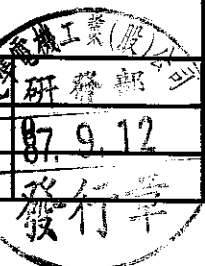 電機工業(股)公司
研發部
87.9.12
發行章